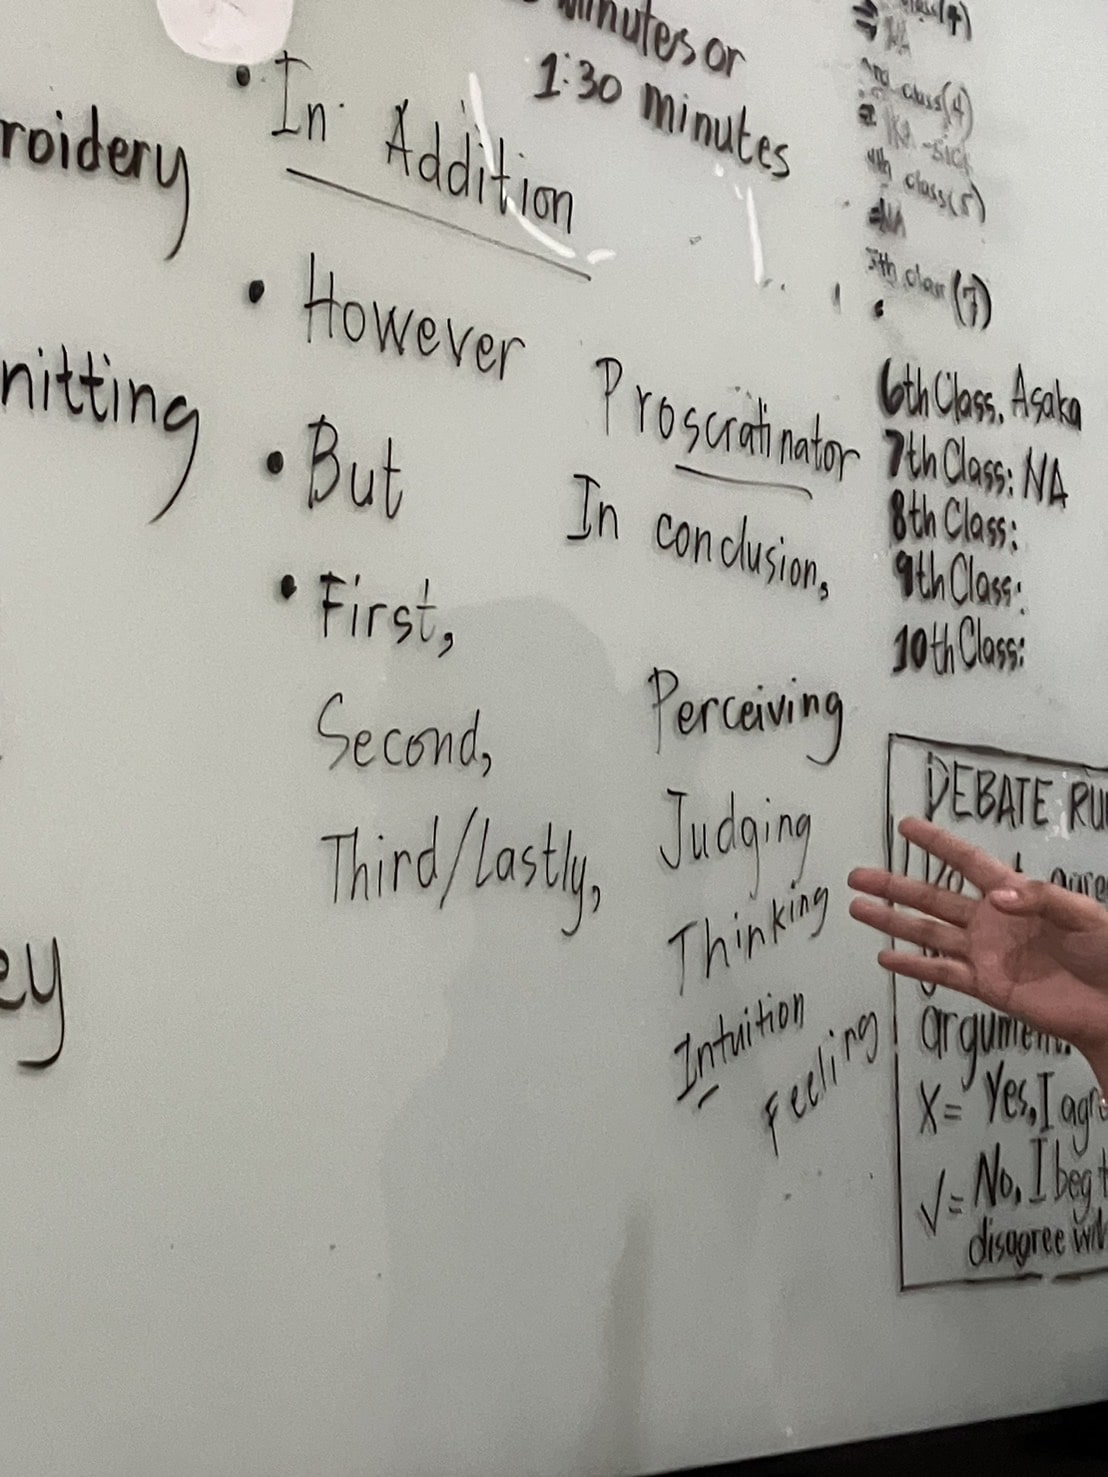 roidery
nitting
ey
minutes or
1:30 minutes
• In Addition
• However
• But
• First,
Second,
Third/lastly,
Proscratinator
In conclusion,
Perceiving
Judging
Thinking
Intuition
Feeling
class(4)
NA
class(4)
class(5)
NA
5th class (7)
6th Class. Asaka
7th Class: NA
8th Class:
9th Class:
10th Class:
DEBATE RU
agre
argument.
X= Yes, I agre
√= No, I beg t
disagree wi